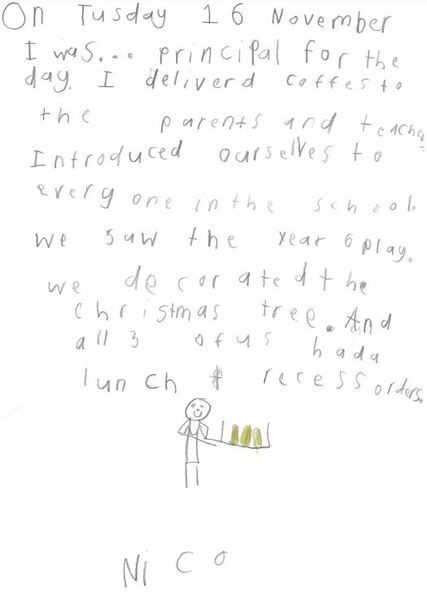 On Tusday 16 November
I was... principal for the
day. I deliverd coffes to
the parents and teache
Introduced ourselves to
every one in the school.
We saw the Year 6 play.
we decorated the
christmas tree. And
all 3 of us had a
lunch + recess orders.
NiCO